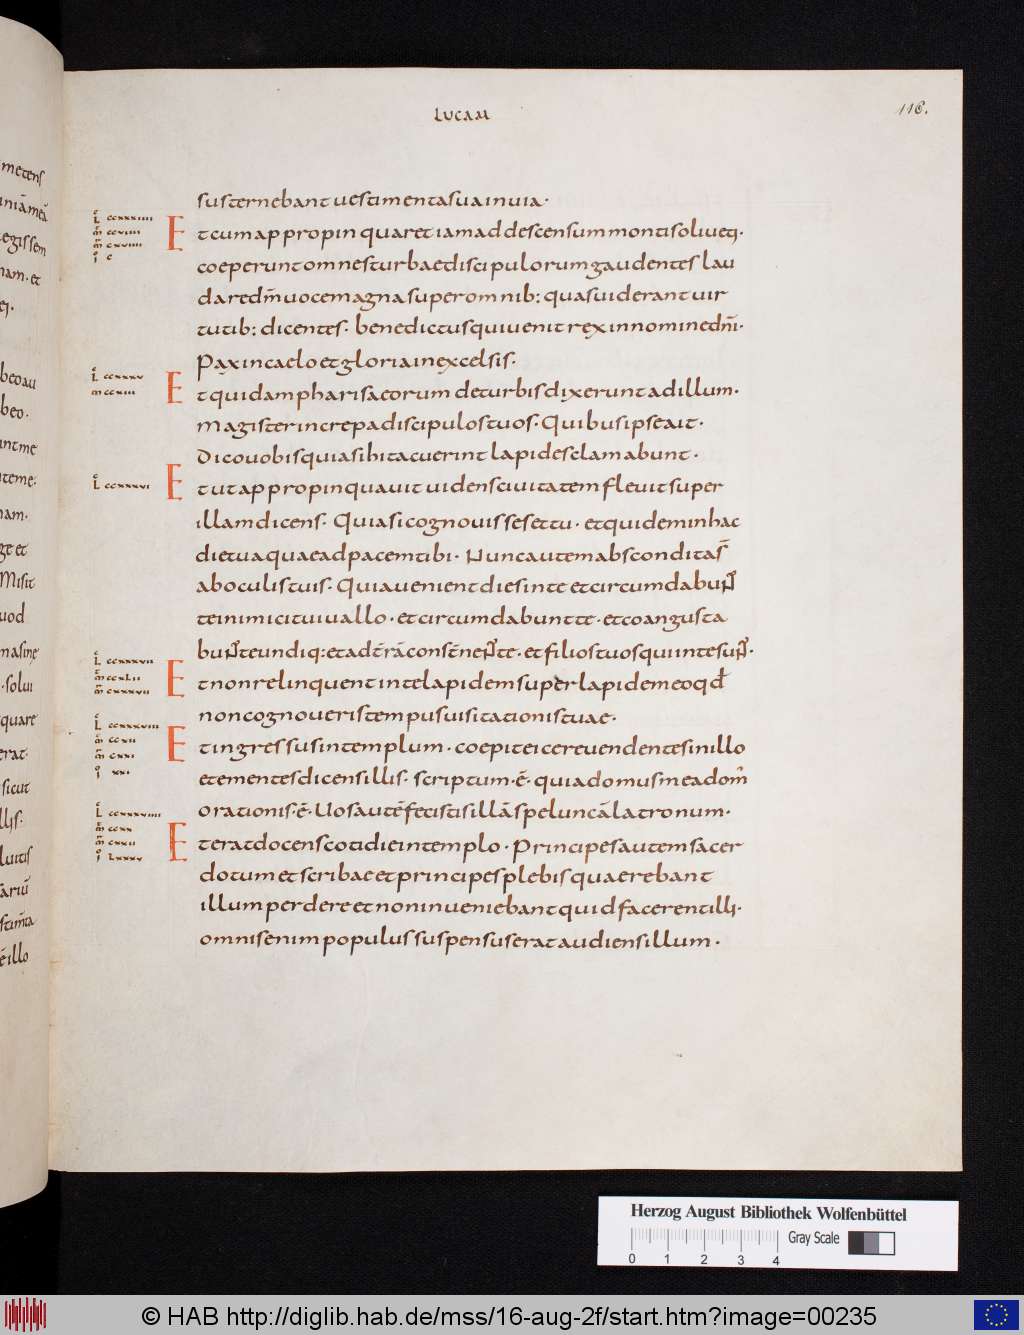 LUCAM
116.
susternebant uestimenta sua in uia·
Et cum appropinquaret iam ad descensum montis oliueti·
coeperunt omnes turbae discipulorum gaudentes lau
dare dm̄ uoce magna super omnib: quas uiderant uir
tutib: dicentes· benedictus qui uenit rex in nomine dn̄i·
Pax in caelo et gloria in excelsis·
Et quidam pharisaeorum de turbis dixerunt ad illum·
Magister increpa discipulos tuos· Quibus ipse ait·
Dico uobis quia si hi tacuerint lapides clamabunt·
Et ut appropinquauit uidens ciuitatem fleuit super
illam dicens· Quia si cognouisses et tu· et quidem in hac
die tua quae ad pacem tibi· Nunc autem abscondita s̄
ab oculis tuis· Quia uenient dies in te et circumdabun̄
te inimici tui uallo· et circumdabunt te· et coangusta
bun̄ te undiq: et ad t̄rā const̄nen̄ te· et filios tuos qui in te sun̄·
Et non relinquent in te lapidem super lapidem eo qđ
non cognoueris tempus uisitationis tuae·
Et ingressus in templum· coepit eicere uendentes in illo
et ementes dicens illis· scriptum·ē· quia domus mea dom̄
orationis·ē· Uos autē fecistis illā speluncā latronum·
Et erat docens cotidie in templo· Principes autem sacer
dotum et scribae et principes plebis quaerebant
illum perdere et non inueniebant quid facerent illi·
omnis enim populus suspensus erat audiens illum·
L ccxxxiiii
m̄ ccviii
m̄ cxviiii
i c
L ccxxxv
m ccxiii
L ccxxxvi
L ccxxxvii
m̄ ccxLii
m̄ cxxxvii
L ccxxxviii
m̄ ccxii
m̄ cxxi
i xxi
L ccxxxviiii
m̄ ccxx
m̄ cxxii
i Lxxxv
Herzog August Bibliothek Wolfenbüttel
0 1 2 3 4
Gray Scale
© HAB http://diglib.hab.de/mss/16-aug-2f/start.htm?image=00235